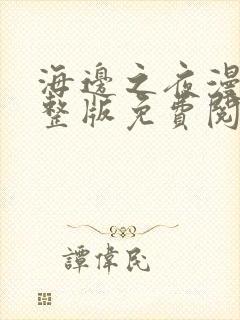 海邊之夜漫
整版免費閱
譚偉民